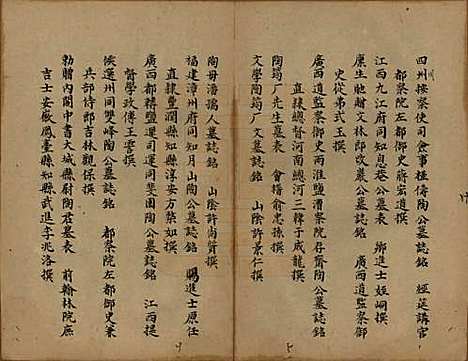 四川按察使司僉事柱傳陶公墓誌銘　經筵講官
都察院左都御史府宓道撰
江西九江府同知息菴公墓表　鄉進士姪峒撰
廩生貤翰文林郎改菴公墓誌銘　廣西道監察御
史從弟式玉撰
廣西道監察御史兩淮鹽漕察院存齋陶公墓誌銘
直隸總督河南總河三韓于成龍撰
陶筠厂先生墓表　會稽俞忠孫撰
文學陶筠厂文墓誌銘　山陰許景仁撰
陶母潘孺人墓誌銘　山陰許尚質撰
福建漳州府同知月山陶公墓誌銘　賜進士原任
直隸豐潤縣知縣淳安方槊如撰
廣西都轉鹽運司運同斐園陶公墓誌銘　江西提
督學政傅王雯撰
候選州同雙峰陶公墓誌銘　都察院左都御史兼
兵部侍郎吉林觀保撰
勅贈內閣中書大城縣尉陶君墓表　前翰林院庶
吉士安徽鳳臺縣知縣武進李兆洛撰